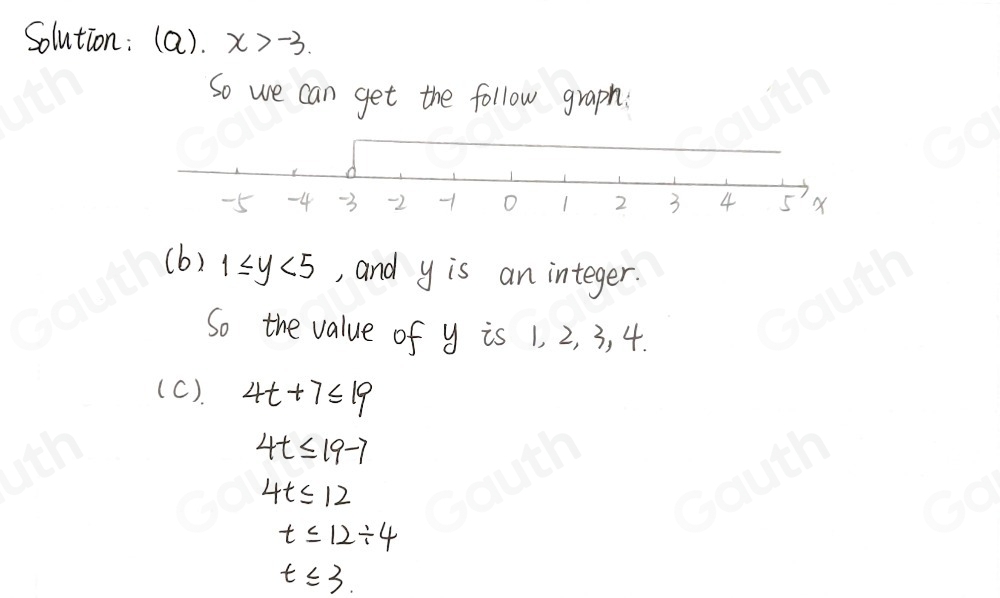 Solution: (a). x > -3.
So we can get the follow graph:
-5 -4 -3 -2 -1 0 1 2 3 4 5 x
(b) 1 ≤ y < 5 , and y is an integer.
So the value of y is 1, 2, 3, 4.
(C). 4t + 7 ≤ 19
4t ≤ 19 - 7
4t ≤ 12
t ≤ 12 ÷ 4
t ≤ 3.
Gauth